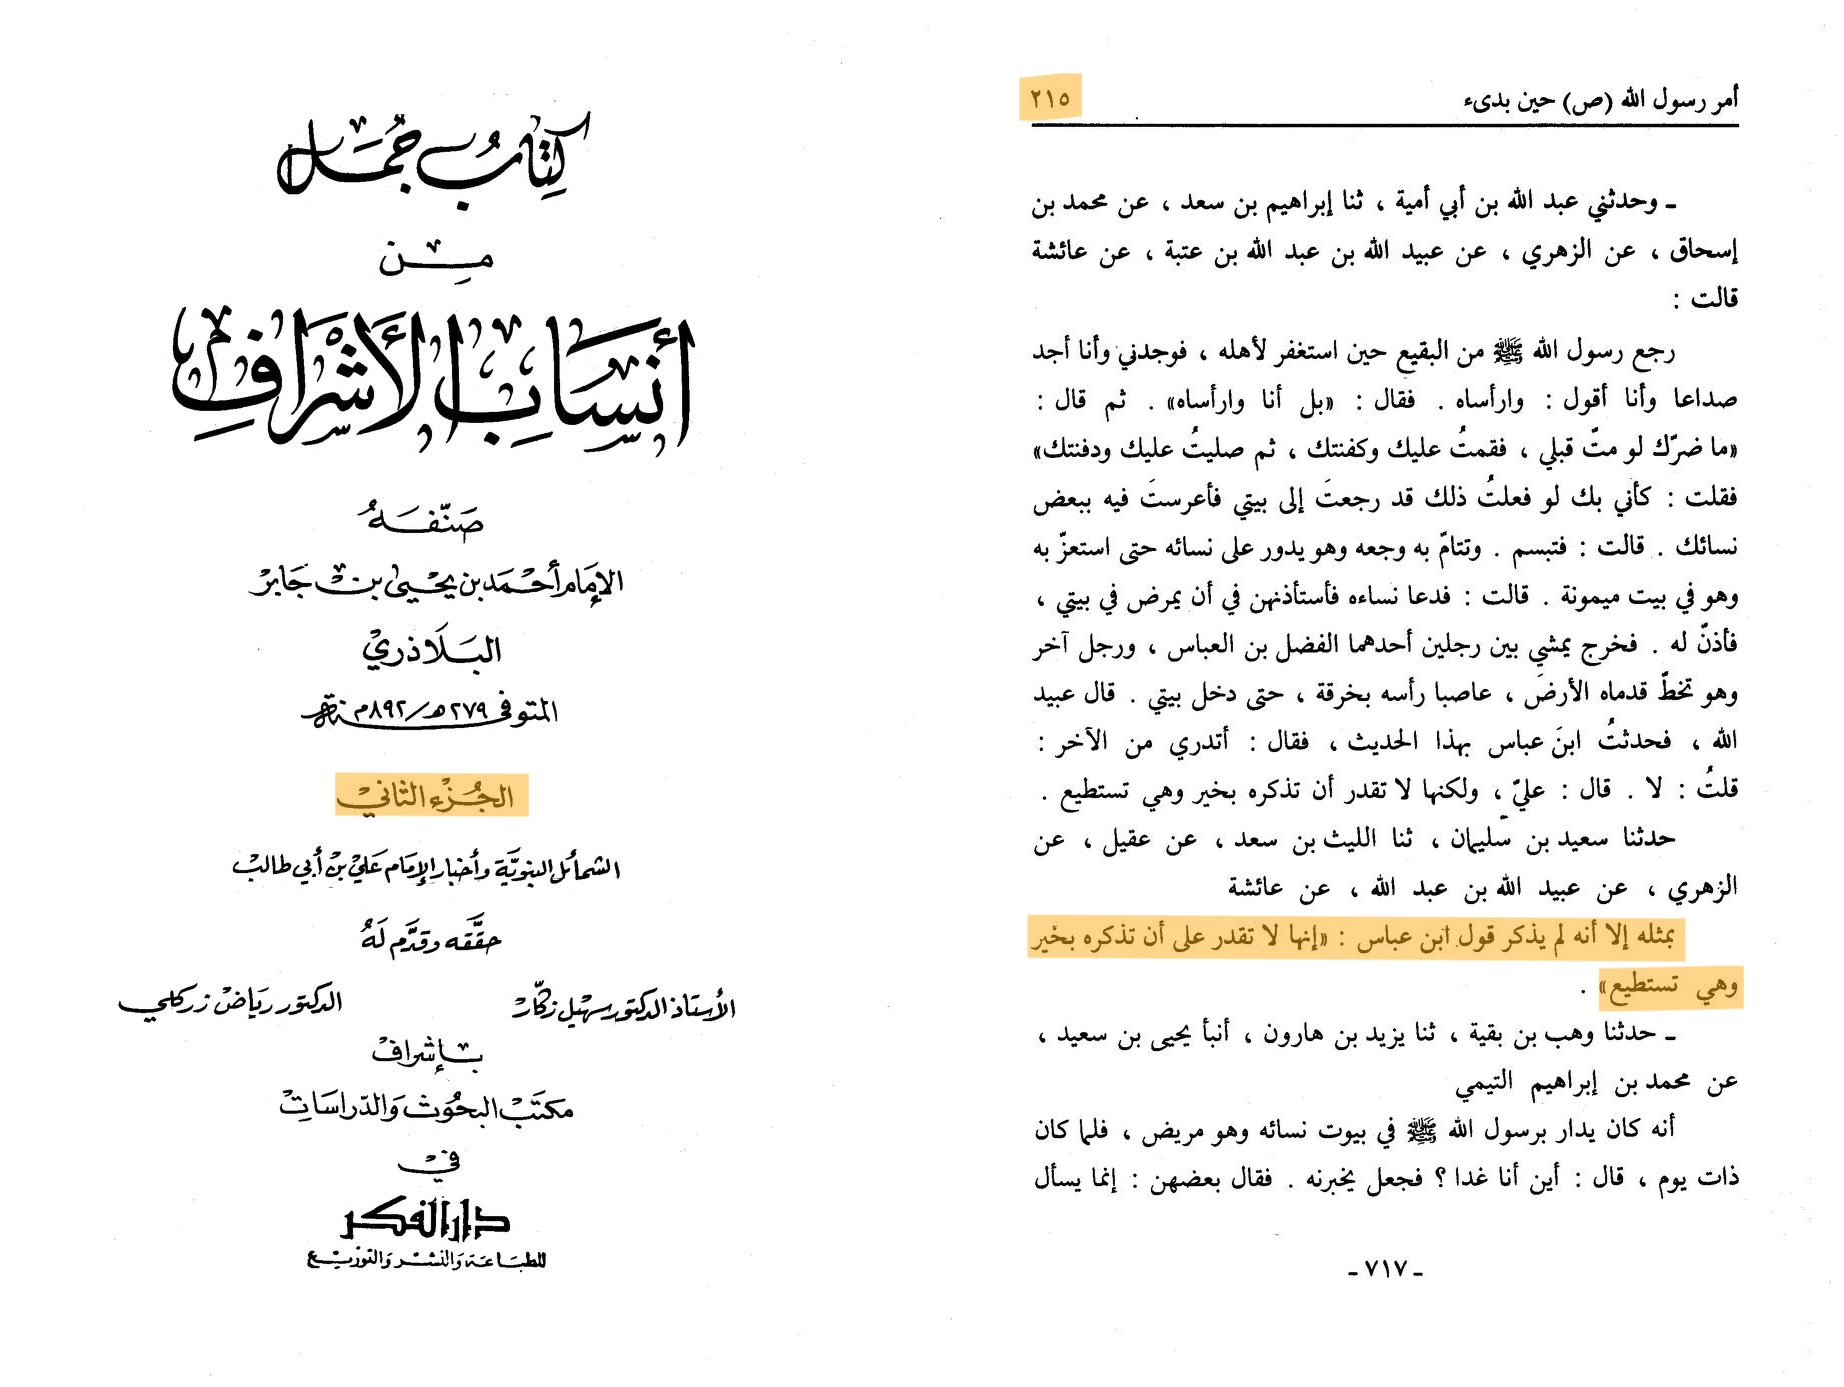 أمر رسول الله (ص) حين بدىء ٢١٥
ـ وحدثني عبد الله بن أبي أمية ، ثنا إبراهيم بن سعد ، عن محمد بن
إسحاق ، عن الزهري ، عن عبيد الله بن عبد الله بن عتبة ، عن عائشة
قالت :
رجع رسول الله ﷺ من البقيع حين استغفر لأهله ، فوجدني وأنا أجد
صداعا وأنا أقول : وارأساه . فقال : «بل أنا وارأساه» . ثم قال :
«ما ضرّك لو متّ قبلي ، فقمتُ عليك وكفنتك ، ثم صليتُ عليك ودفنتك»
فقلت : كأني بك لو فعلتُ ذلك قد رجعتَ إلى بيتي فأعرستَ فيه ببعض
نسائك . قالت : فتبسم . وتتامّ به وجعه وهو يدور على نسائه حتى استعزّ به
وهو في بيت ميمونة . قالت : فدعا نساءه فأستأذنهن في أن يمرض في بيتي ،
فأذنّ له . فخرج يمشي بين رجلين أحدهما الفضل بن العباس ، ورجل آخر
وهو تخطّ قدماه الأرض ، عاصبا رأسه بخرقة ، حتى دخل بيتي . قال عبيد
الله ، فحدثتُ ابنَ عباس بهذا الحديث ، فقال : أتدري من الآخر :
قلتُ : لا . قال : عليّ ، ولكنها لا تقدر أن تذكره بخير وهي تستطيع .
حدثنا سعيد بن سليمان ، ثنا الليث بن سعد ، عن عقيل ، عن
الزهري ، عن عبيد الله بن عبد الله ، عن عائشة
بمثله إلا أنه لم يذكر قول ابن عباس : «إنها لا تقدر على أن تذكره بخير
وهي تستطيع» .
ـ حدثنا وهب بن بقية ، ثنا يزيد بن هارون ، أنبأ يحيى بن سعيد ،
عن محمد بن إبراهيم التيمي
أنه كان يدار برسول الله ﷺ في بيوت نسائه وهو مريض ، فلما كان
ذات يوم ، قال : أين أنا غدا ؟ فجعل يخبرنه . فقال بعضهن : إنما يسأل
ـ ٧١٧ ـ
كِتَابُ جُمَل
مِن
أنسَابِ الأَشْرَافِ
صَنّفَهُ
الإمَام أحْمَد بن يحْيى بنْ جَابرْ
البَلَاذري
المتوفى سنة ٢٧٩هـ/٨٩٢م
الجُزء الثاني
الشمائل النبويَّة وأخبار الإمَام عَلي بن أبي طالب
حقَّقه وقدَّم لَهُ
الأستاذ الدكتور سهيل زكّار الدكتور ريَاض زركلي
بإشراف
مكتَب البحُوث وَالدّراسَات
في
دار الفكر
للطبَاعَة وَالنشْر وَالتوزيْع